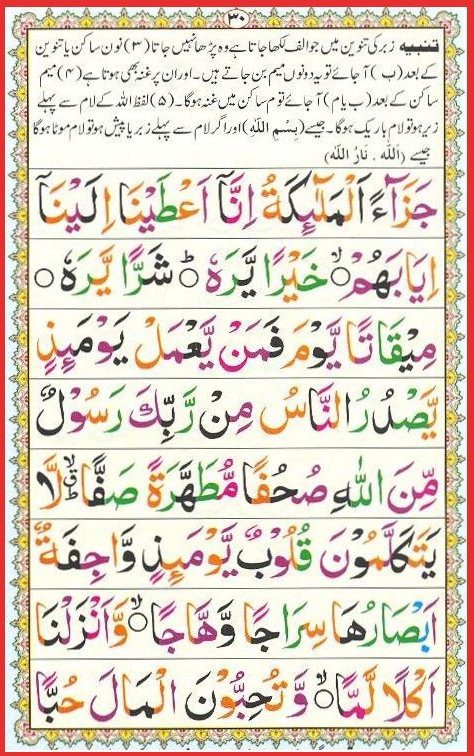 ۳۰
تنبیہ زبر کی تنوین میں جو الف لکھا جاتا ہے وہ پڑھا نہیں جاتا (۳) نون ساکن یا تنوین
کے بعد (ب) آ جائے تو یہ دونوں میم بن جاتے ہیں۔ اور ان پر غنہ بھی ہوتا ہے (۴) میم
ساکن کے بعد (ب یا م) آ جائے تو م ساکن میں غنہ ہو گا۔ (۵) لفظ اللہ کے لام سے پہلے
زیر ہو تو لام باریک ہو گا۔ جیسے (بِسْمِ اللّٰهِ) اور اگر لام سے پہلے زبر یا پیش ہو تو لام موٹا ہو گا
جیسے (اَللّٰهُ ۔ نَارُ اللّٰهِ)
جَزَآءً اَلْمَلٰٓئِكَةُ اِنَّآ اَعْطَيْنَا اِلَيْنَآ
اِيَابَهُمْ ۙ○ خَيْرًا يَّرَهٗ ○ؕ شَرًّا يَّرَهٗ ○
مِيْقَاتًا يَّوْمَ فَمَنْ يَّعْمَلْ يَوْمَئِذٍ
يَّصْدُرُ النَّاسُ مِنْ رَّبِّكَ رَسُوْلٌ
مِّنَ اللّٰهِ صُحُفًا مُّطَهَّرَةً صَفًّا ۙۗؕ لَّا
يَتَكَلَّمُوْنَ قُلُوْبٌ يَّوْمَئِذٍ وَّاجِفَةٌ
اَبْصَارُهَا سِرَاجًا وَّهَّاجًا ۙ○ وَّاَنْزَلْنَا
اَكْلًا لَّمًّا ۙ○ وَّتُحِبُّوْنَ الْمَالَ حُبًّا